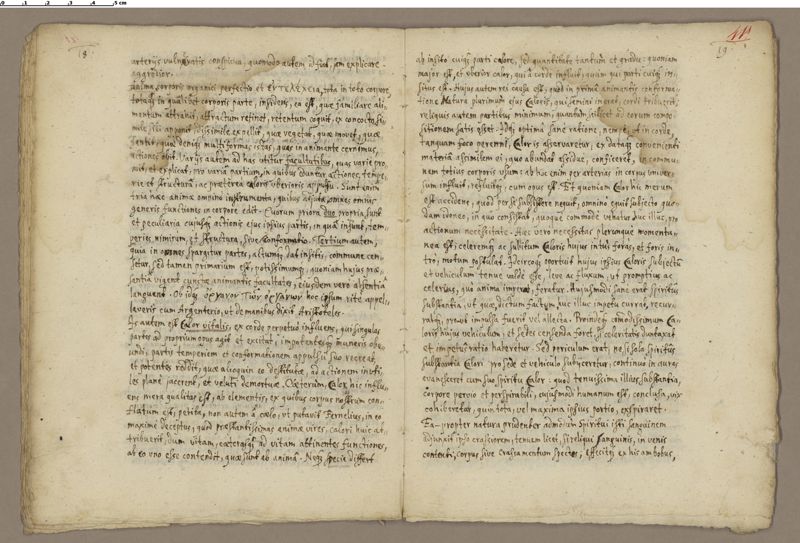 0 1 2 3 4 5 cm
18
arterijs vulneratis conspicua, quomodo autem id fiat, jam explicare
aggredior.
Anima corporis organici perfectio et ΕΝΤΕΛΕΧΕΙΑ, tota in toto corpore,
totaque in qualibet corporis parte, insidens, ea est, quae familiare ali-
mentum attrahit, attractum retinet, retentum coquit, ex concocto si-
mile sibi apponit, dissimile expellit, quae vegetat, quae movet, quae
sentit, quae denique multiformas, istas, quas in animante cernimus,
actiones obit. Varijs autem ad has utitur facultatibus, quas varie pro-
mit, et explicat, pro varia partium, in quibus eduntur actiones, tempe-
rie et structura, ac praeterea caloris uberioris appulsu. Sunt enim
tria haec animae omnino instrumenta, quibus adjuta, omnes omnis
generis functiones in corpore edit. Quorum priora duo propria sunt
et peculiaria cujusque actionis ejus ipsius partis, in qua insunt, tem-
peries nimirum, et structura, sive conformatio. Tertium autem,
quia in omnes spargitur partes, altiusque dat insitis, commune cen-
setur, sed tamen primarium est, potissimumque, quoniam hujus prae-
sentia vigent cunctae animantis facultates, ejusdem vero absentia
languent. Ob idque ὄργανον τῶν ὀργάνων hoc ipsum rite appel-
laveris cum Argenterio, ut de manibus dixit Aristoteles.
Is autem est Calor vitalis, ex corde perpetuo influens, qui singulas
partes ad proprium opus agit et excitat, impotentesque muneris obe-
undi, partis temperiem et conformationem appulsu suo recreat,
et potentes reddit, quae alioquin eo destitutae, ad actionem inuti-
les plane jacerent, et veluti demortuae. Caeterum Calor hic influ-
ens mera qualitas est, ab elementis, ex quibus corpus nostrum con-
flatum est, petita, non autem a caelo, ut putavit Fernelius, in eo
maxime deceptus, quod praestantissimas animae vires calori huic at-
tribuerit, dum vitam, caeterasque ad vitam attinentes functiones,
ab eo uno esse contendit, quae sunt ab anima. Neque specie differt
19
ab insito cuique parti calore, sed quantitate tantum et gradu: quoniam
major est, et uberior calor, qui a corde influit, quam qui parti cuique in-
situs est. Hujus autem rei causa est, quod in prima animantis conforma-
tione Natura plurimum ejus Caloris, qui semini inerat, cordi tribuerit,
reliquis autem partibus minimum, quantum scilicet ad eorum compo-
sitionem satis esset. Idque optima sane ratione, nempe, ut in corde,
tanquam foco perenni, Caloris asservaretur, ex datque convenienti
materia assimilem ei, quo abundat assidue, conficeret, in commu-
nem totius corporis usum: ab hoc enim per arterias in corpus univer-
sum influit, refluitque, cum opus est. Et quoniam Calor hic merum
est accidens, quod per se subsistere nequit, omnino eguit subjecto quo-
dam idoneo, in quo consistat, quoque commode vehatur huc illuc, pro
actionum necessitate. Haec vero necessitas plerumque momenta-
nea est; celeremque ac subitum Caloris hujus intus foras, et foris in-
tro, motum postulat. Idcircoque oportuit hujus ipsius Caloris subjectum
et vehiculum tenue valde esse, leve ac fluxum, ut promptius ac
celerius, quo anima imperat, feratur. Hujusmodi sane erat spiritus
substantia, ut quae, dictum factum, huc illuc impetu currat, recur-
ratque, prout impulsa fuerit vel allecta. Proindeque commodissimum Ca-
loris hujus vehiculum, et sedes censenda foret, si celeritatis duntaxat
et impetus ratio haberetur. Sed periculum erat, ne si sola spiritus
substantia Calori pro sede et vehiculo subjiceretur, continuo in auras
evanesceret cum suo spiritu Calor: quod tenuissima illius substantia,
corpore pervio et perspirabili, cujusmodi humanum est, conclusa, vix
cohiberetur, quin tota, vel maxima ipsius portio, exspiraret.
Ea-propter natura prudenter admodum spiritui isti sanguinem
adjunxit ipso crassiorem, tenuem licet, si reliqui sanguinis, in venis
contenti, corpus sive crassamentum spectes; effecitque ex his ambobus,